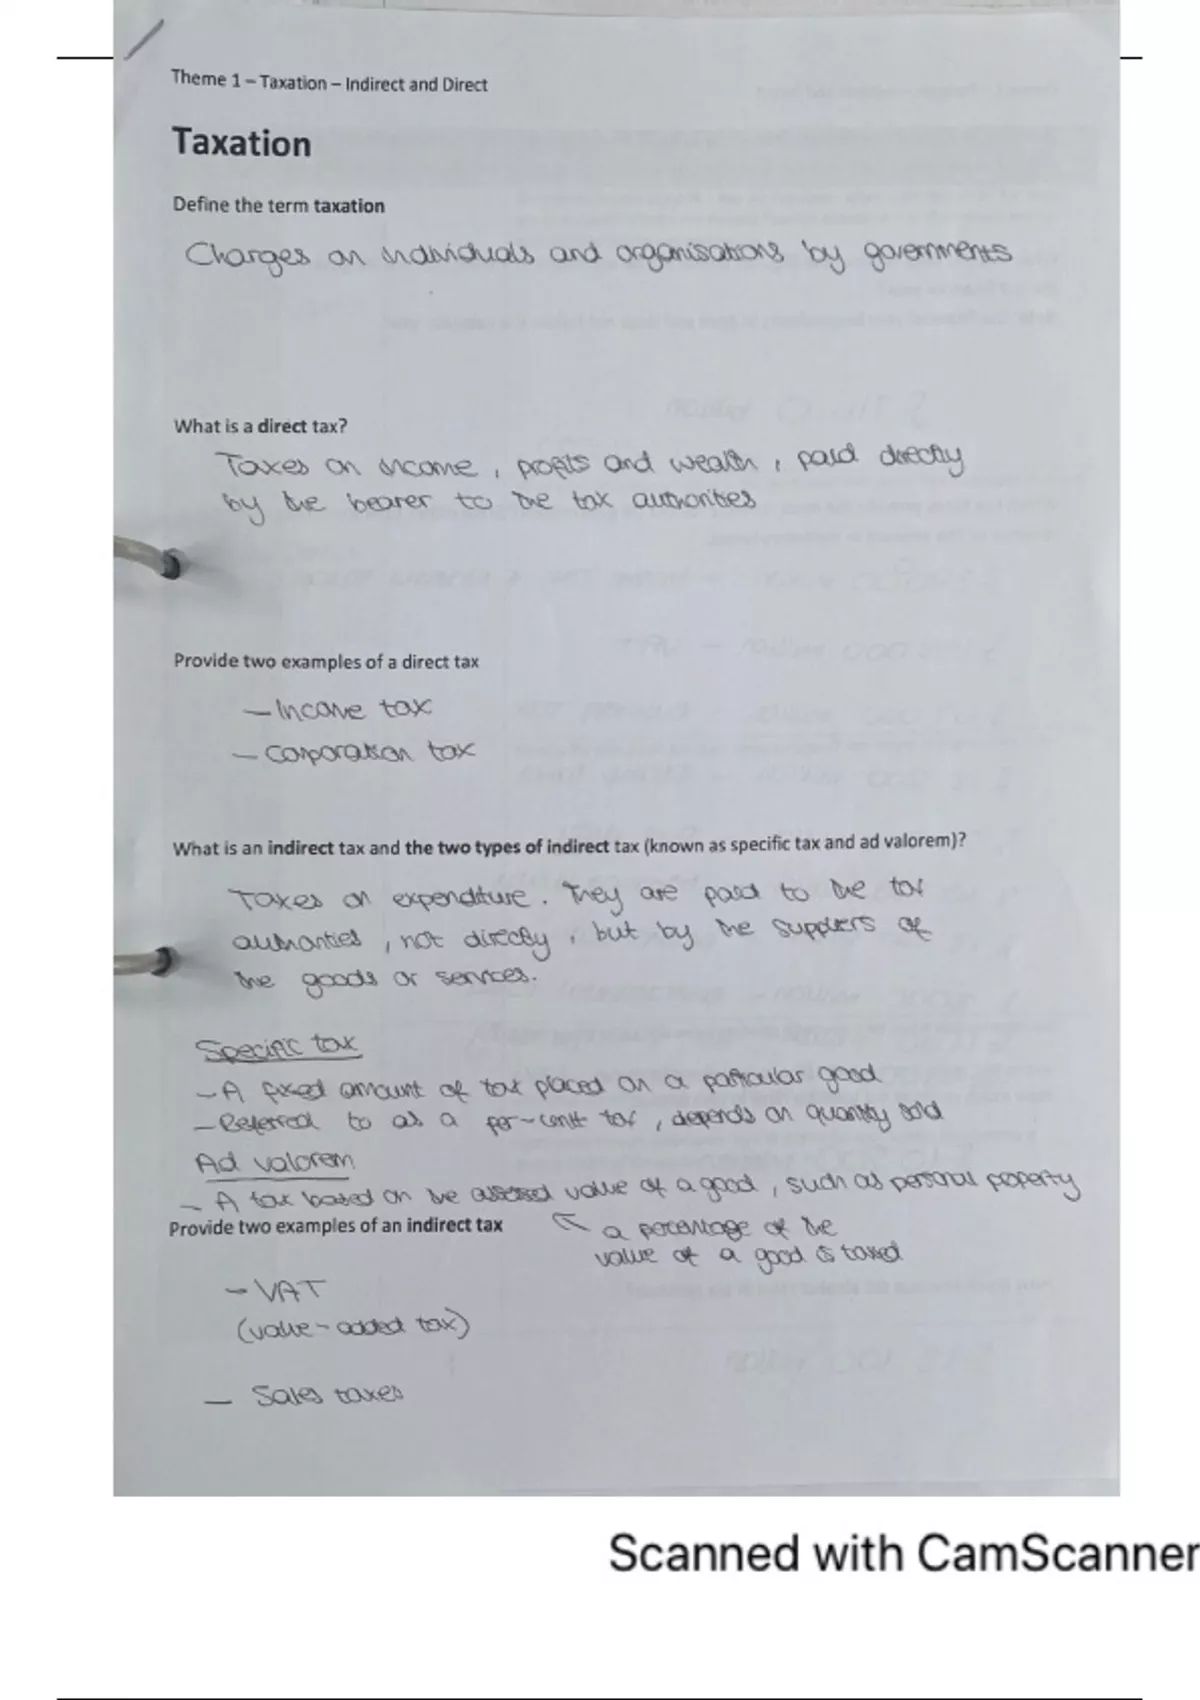 Theme 1 – Taxation – Indirect and Direct
Taxation
Define the term taxation
Charges on individuals and organisations by governments
What is a direct tax?
Taxes on income, profits and wealth, paid directly
by the bearer to the tax authorities
Provide two examples of a direct tax
– Income tax
– Corporation tax
What is an indirect tax and the two types of indirect tax (known as specific tax and ad valorem)?
Taxes on expenditure. They are paid to the tax
authorities, not directly, but by the suppliers of
the goods or services.
Specific tax
– A fixed amount of tax placed on a particular good
– Referred to as a per-unit tax, depends on quantity sold
Ad valorem
– A tax based on the assessed value of a good, such as personal property
Provide two examples of an indirect tax
a percentage of the
value of a good is taxed
– VAT
(value-added tax)
– Sales taxes
Scanned with CamScanner